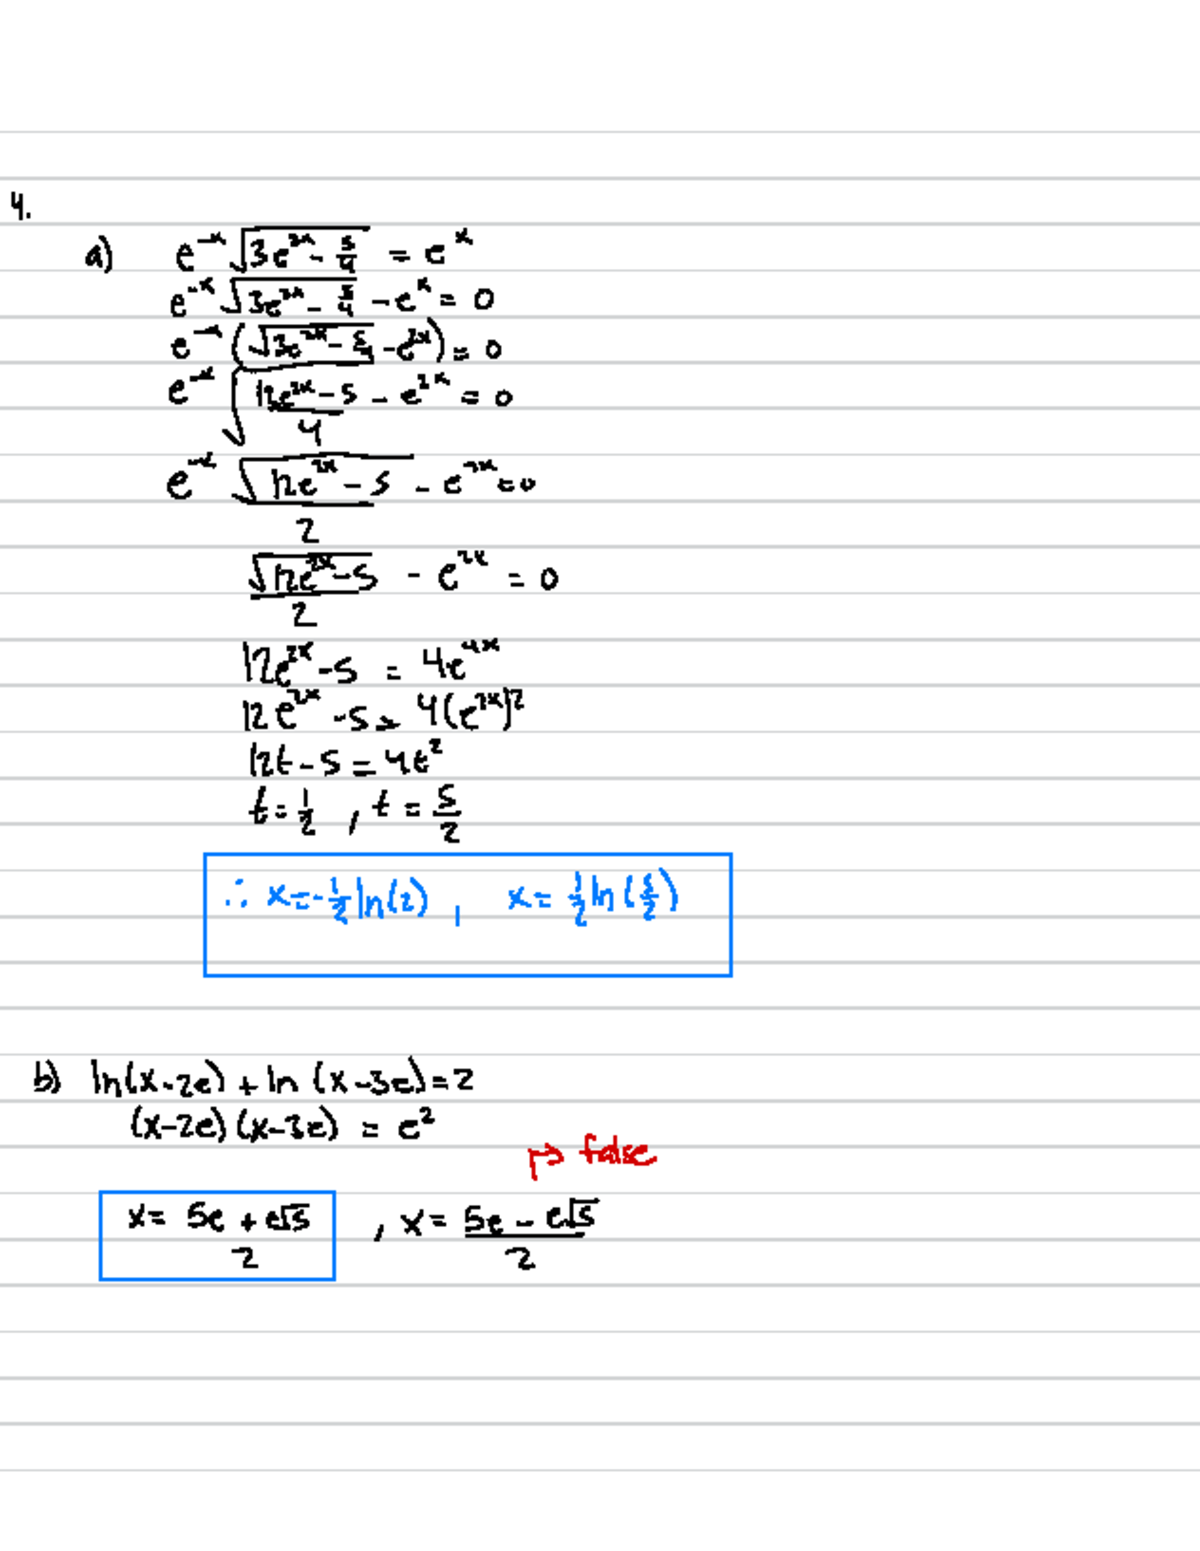 4.
a) e^-x √(3e^2x - 5/4) = e^x
e^-x √(3e^2x - 5/4) - e^x = 0
e^-x (√(3e^2x - 5/4) - e^2x) = 0
e^-x √((12e^2x - 5)/4) - e^2x = 0
e^-x √(12e^2x - 5)/2 - e^2x = 0
√(12e^2x - 5)/2 - e^2x = 0
12e^2x - 5 = 4e^4x
12e^2x - 5 = 4(e^2x)^2
12t - 5 = 4t^2
t = 1/2 , t = 5/2
∴ x = -1/2 ln(2) , x = 1/2 ln(5/2)
b) ln(x-2e) + ln(x-3e) = 2
(x-2e)(x-3e) = e^2
↱ false
x = (5e + e√5)/2 , x = (5e - e√5)/2